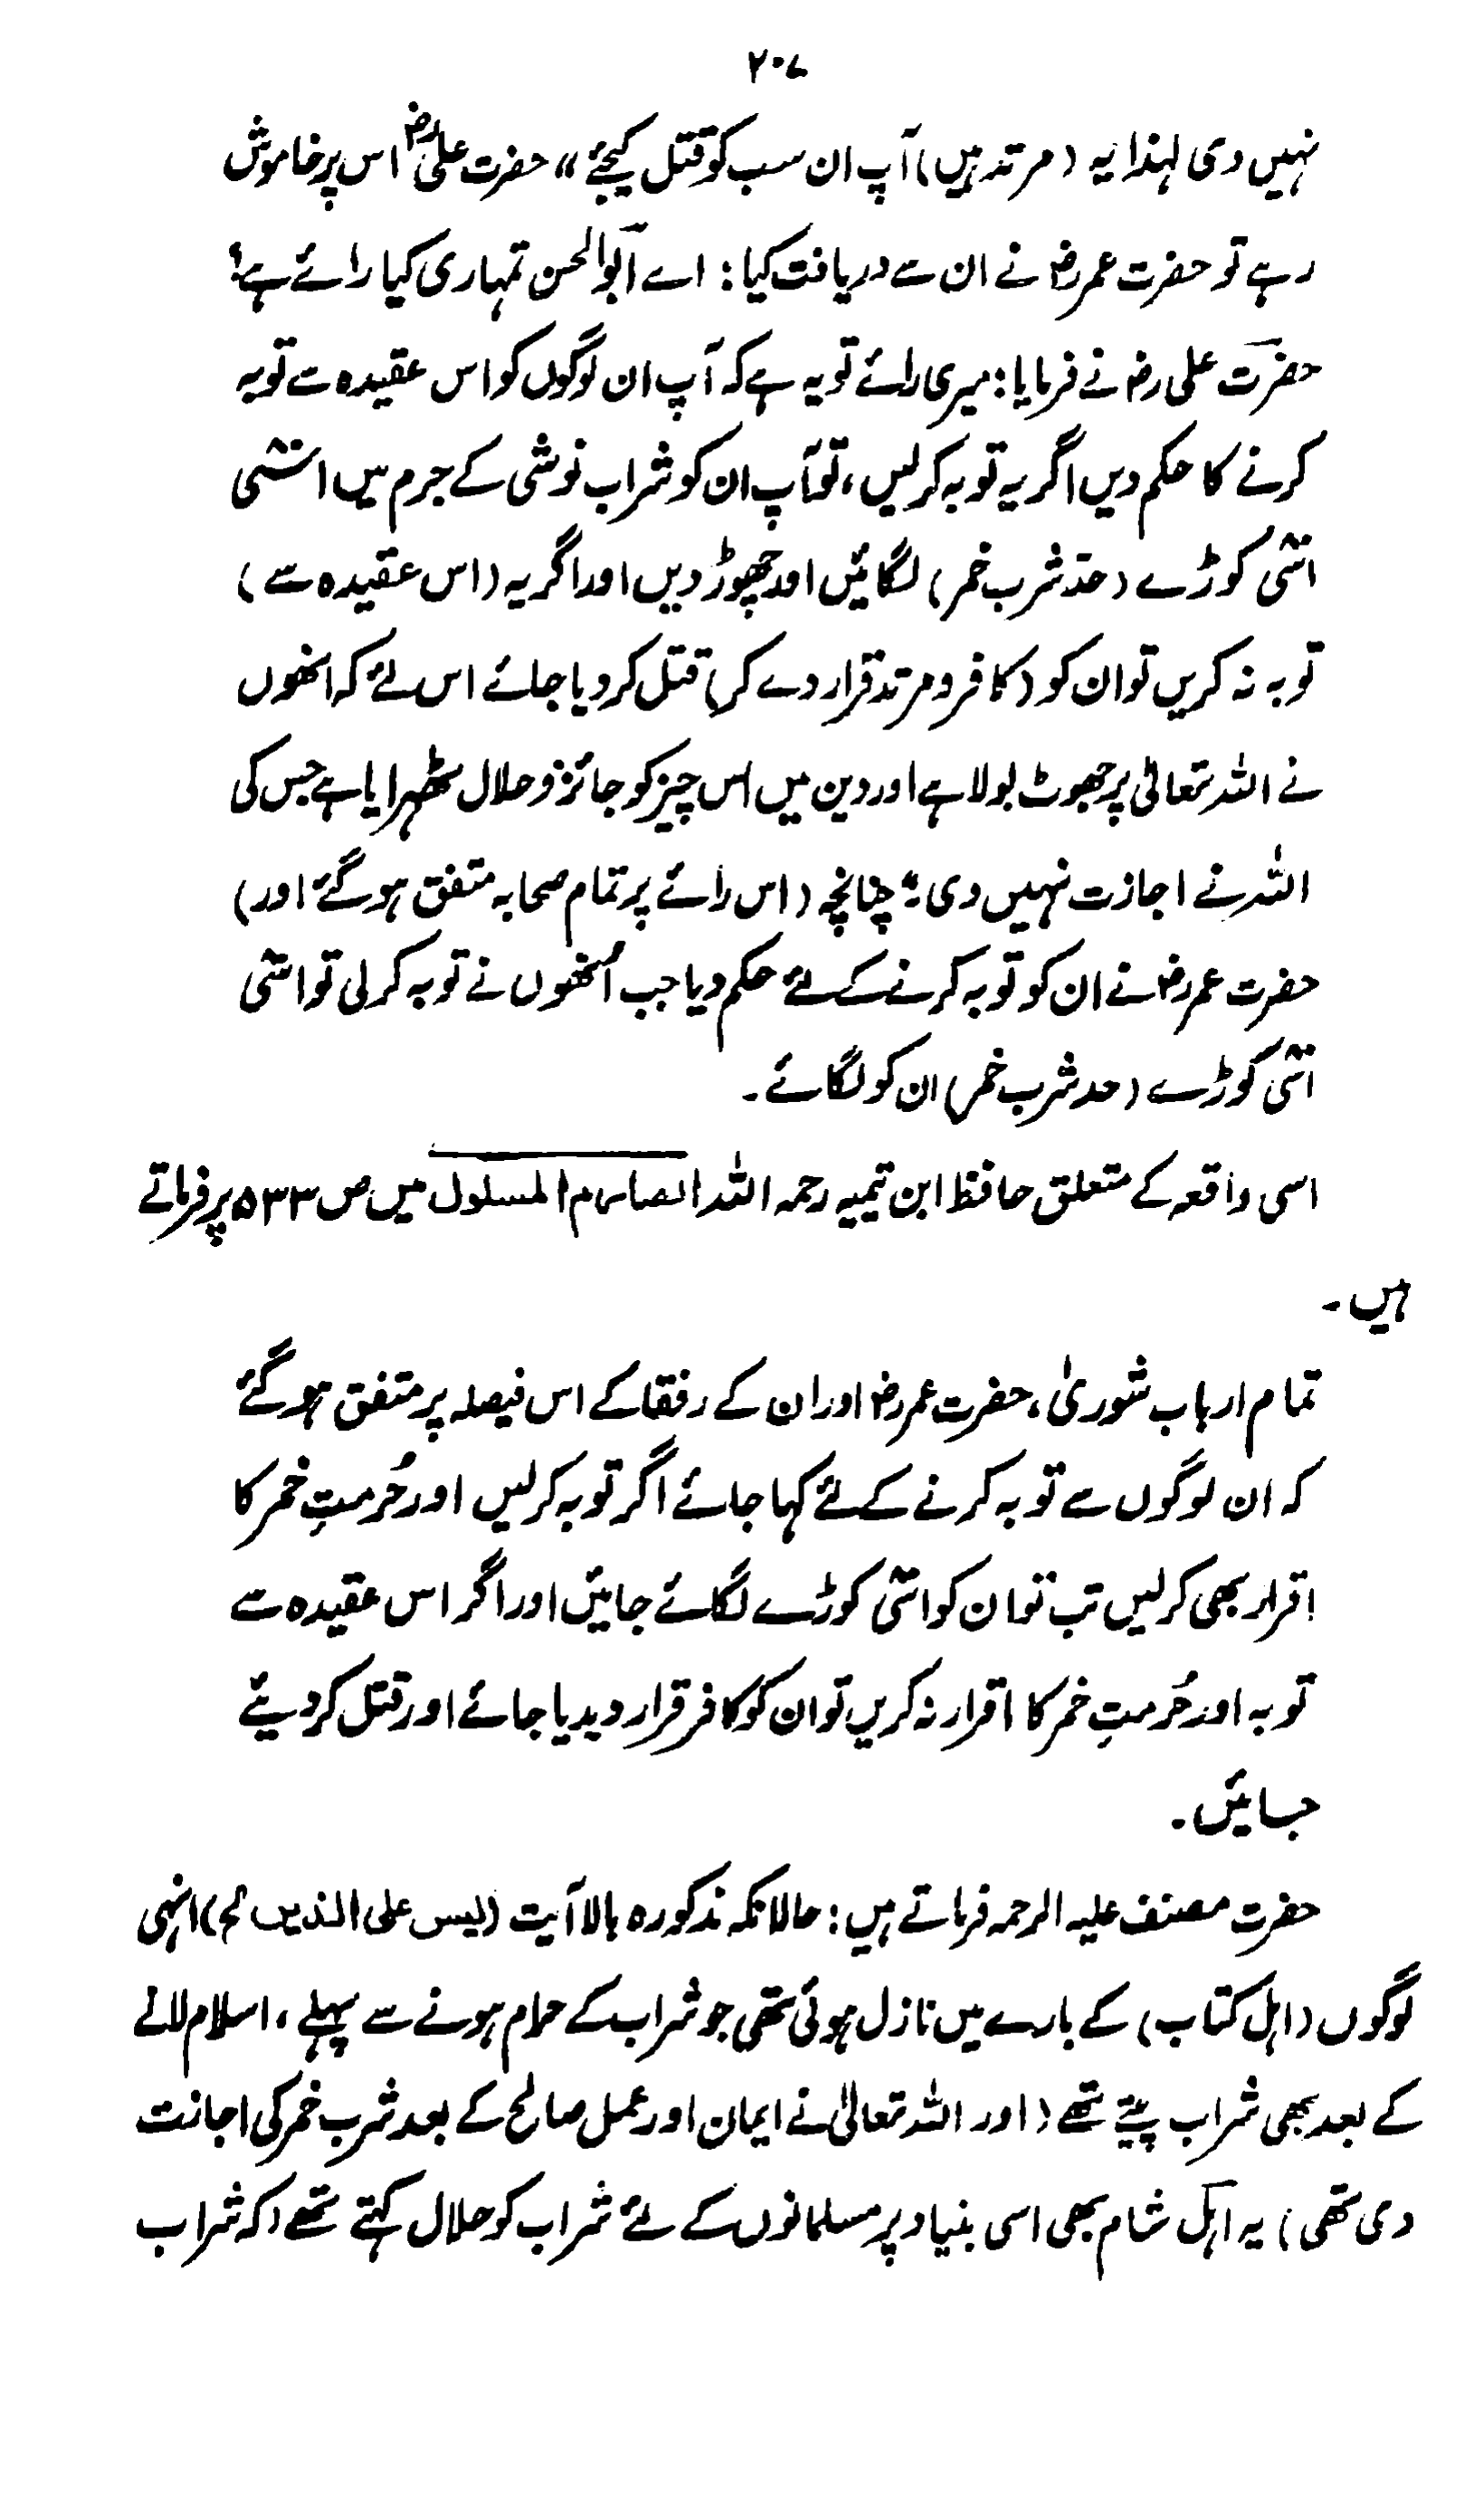 ۲۰۷
نہیں دی لہٰذا یہ (مرتد ہیں) آپ ان سب کو قتل کیجئے" حضرت علیؓ اس پر خاموش
رہے تو حضرت عمر رضؓ نے ان سے دریافت کیا: اے ابوالحسن تمہاری کیا رائے ہے؟
حضرت علی رضؓ نے فرمایا: میری رائے تو یہ ہے کہ آپ ان لوگوں کو اس عقیدہ سے توبہ
کرنے کا حکم دیں اگر یہ توبہ کرلیں، تو آپ ان کو شراب نوشی کے جرم میں اسّی
اسّی کوڑے (حدّ شرب خمر) لگائیں اور چھوڑ دیں اور اگر یہ (اس عقیدہ سے)
توبہ نہ کریں تو ان کو (کافر و مرتد قرار دے کر) قتل کر دیا جائے اس لئے کہ انھوں
نے اللہ تعالیٰ پر جھوٹ بولا ہے اور دین میں اس چیز کو جائز و حلال ٹھہرایا ہے جس کی
اللہ نے اجازت نہیں دی" چنانچہ (اس رائے پر تمام صحابہ متفق ہوگئے اور)
حضرت عمر رضؓ نے ان کو توبہ کرنے کے لئے حکم دیا جب اُنھوں نے توبہ کرلی تو اسّی
اسّی کوڑے (حد شرب خمر) ان کو لگائے۔
اسی واقعہ کے متعلق حافظ ابن تیمیہ رحمہ اللہ الصارم المسلول میں ص ۵۳۳ پر فرماتے
ہیں۔
تمام ارباب شوریٰ، حضرت عمر رضؓ اور ان کے رفقا کے اس فیصلہ پر متفق ہوگئے
کہ ان لوگوں سے توبہ کرنے کے لئے کہا جائے اگر توبہ کرلیں اور حُرمتِ خمر کا
اقرار بھی کرلیں تب تو ان کو اسّی کوڑے لگائے جائیں اور اگر اس عقیدہ سے
توبہ اور حُرمتِ خمر کا اقرار نہ کریں تو ان کو کافر قرار دیدیا جائے اور قتل کر دیئے
جائیں۔
حضرت مصنف علیہ الرحمہ فرماتے ہیں: حالانکہ مذکورہ بالا آیت (لیس علی الذین الخ) انہی
لوگوں (اہل کتاب) کے بارے میں نازل ہوئی تھی جو شراب کے حرام ہونے سے پہلے، اسلام لانے
کے بعد بھی شراب پیتے تھے (اور اللہ تعالیٰ نے ایمان اور عمل صالح کے بعد شرب خمر کی اجازت
دی تھی) یہ اہل شام بھی اسی بنیاد پر مسلمانوں کے لئے شراب کو حلال کہتے تھے (کہ شراب